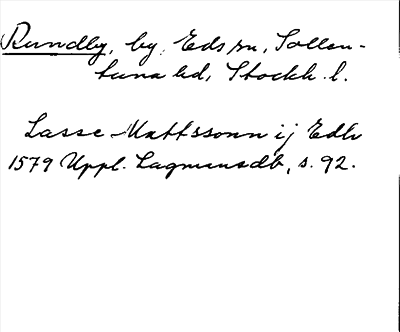 Rundby, by, Eds sn, Sollen-
tuna hd, Stockh. l.
Lasse Mattssonn ij Edh
1579 Uppl. Lagmansdb, s. 92.